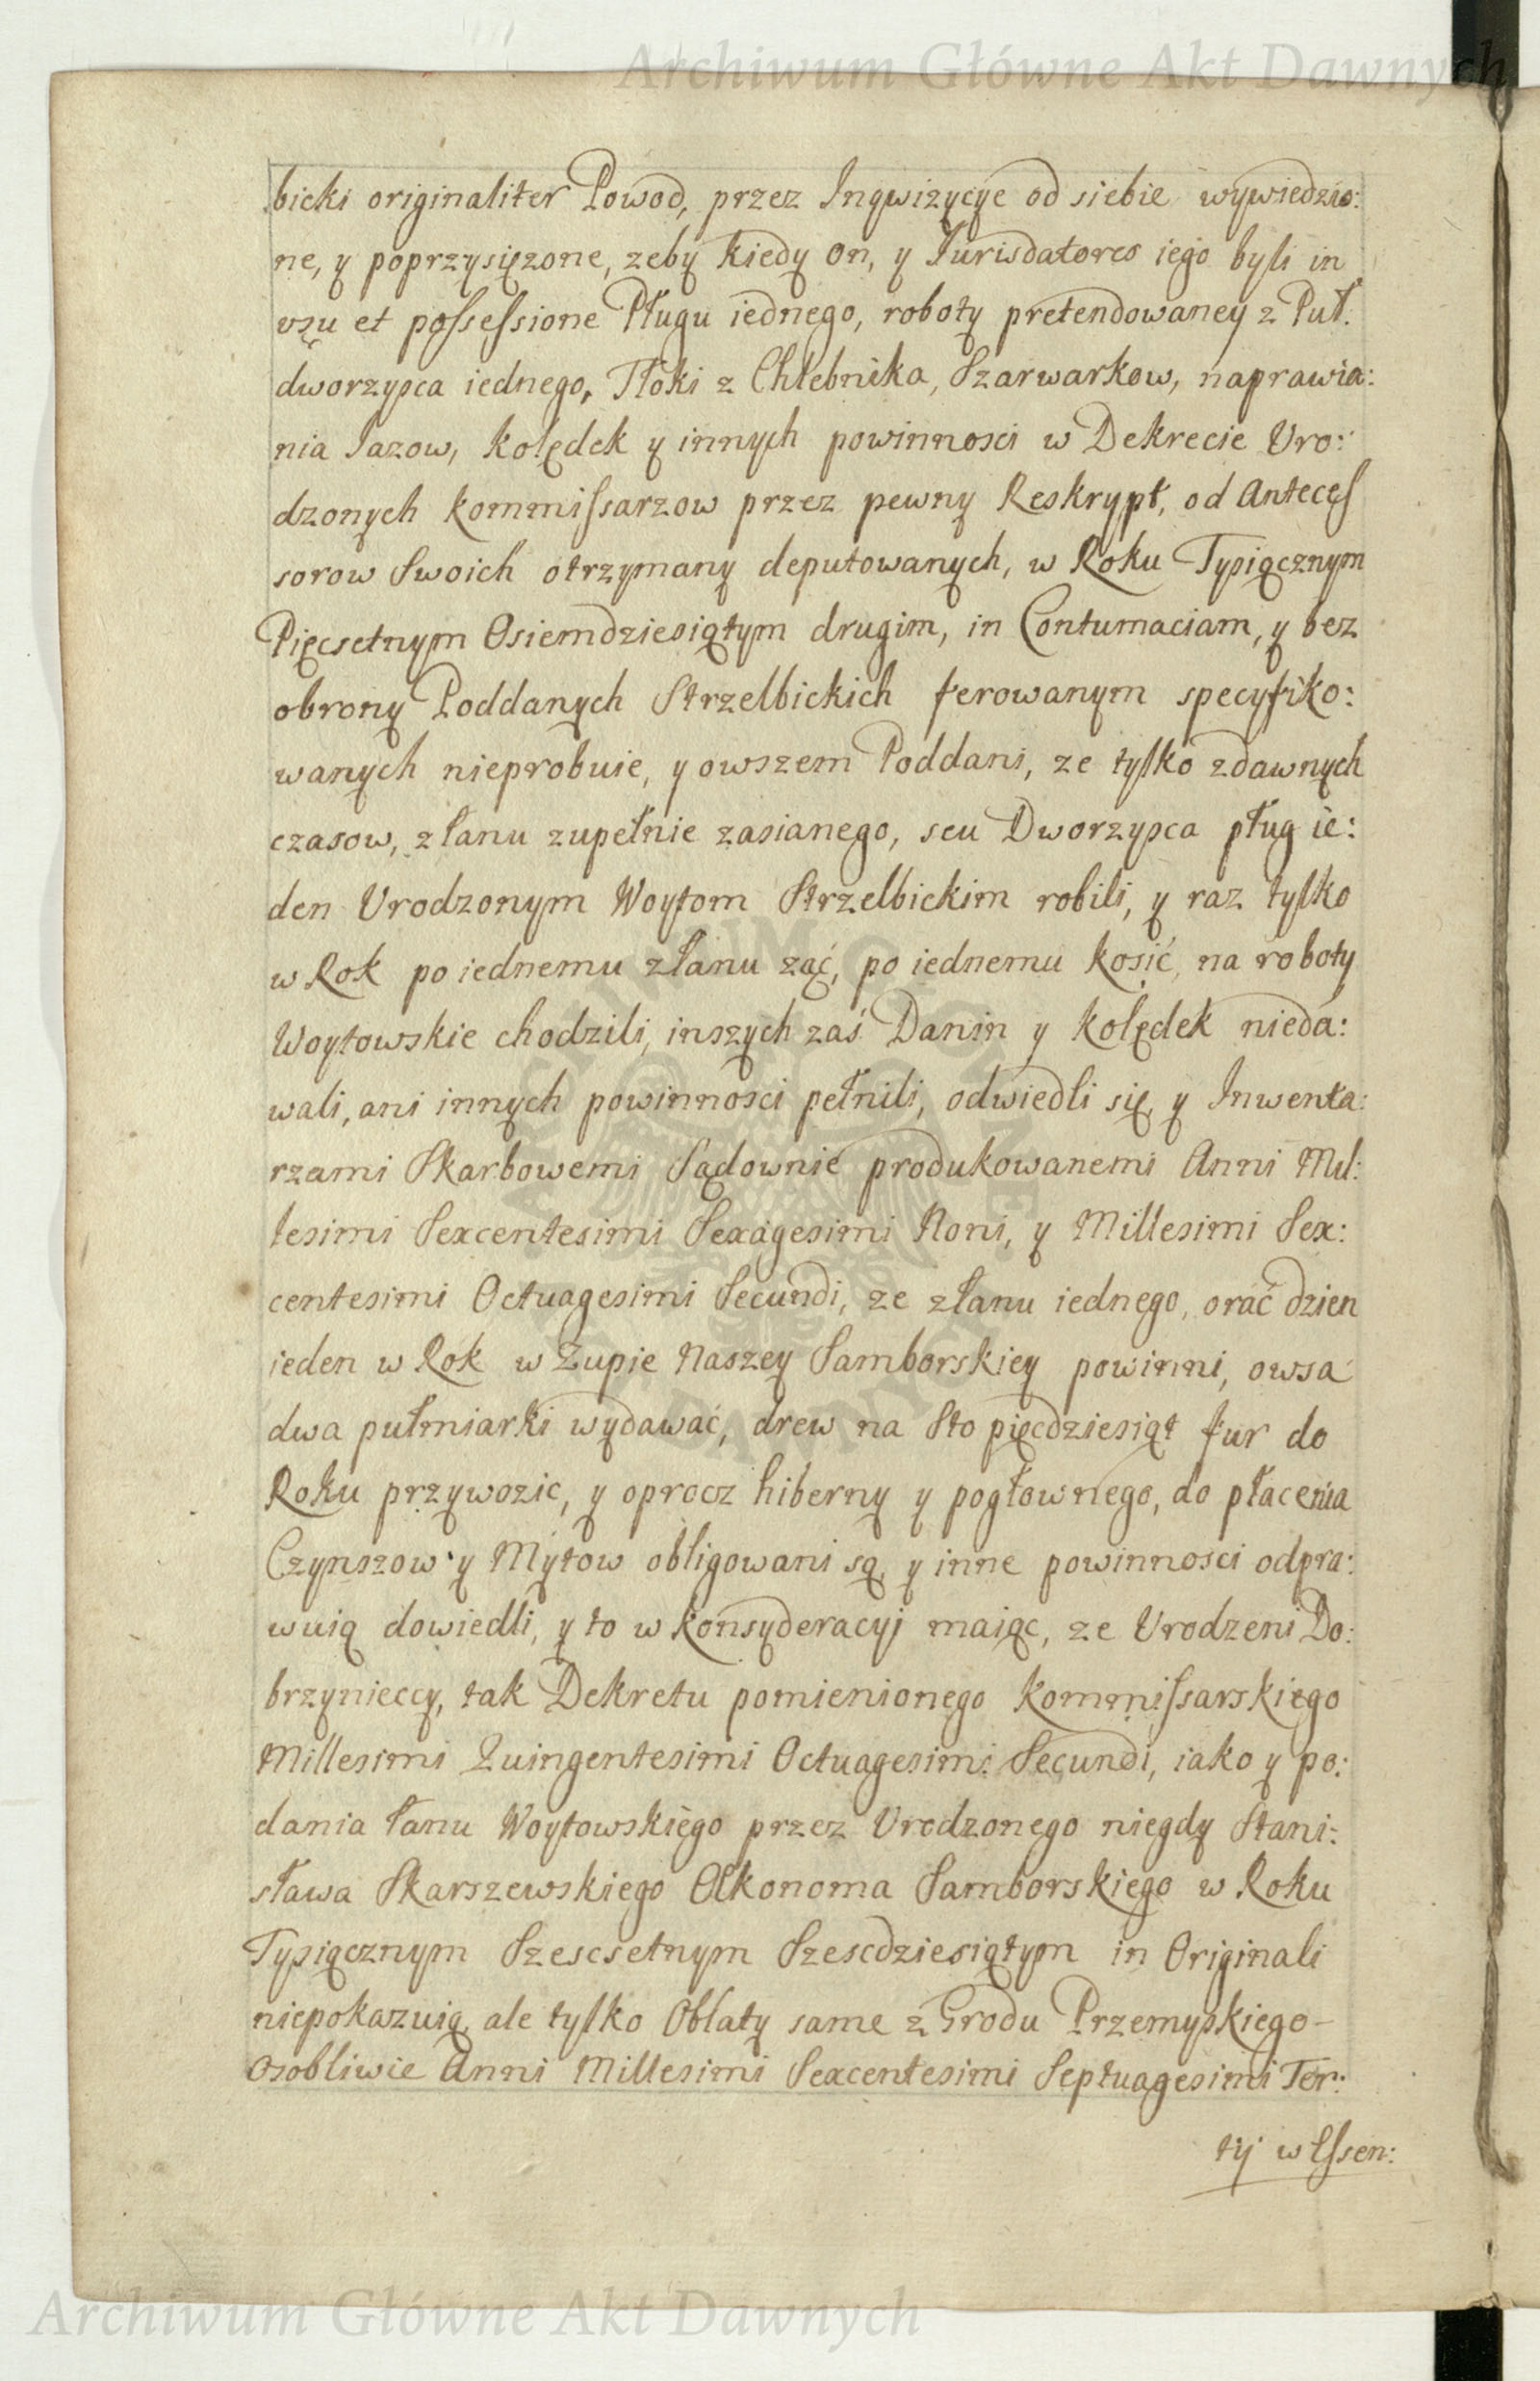 Archiwum Główne Akt Dawnych
bicki originaliter Powod, przez Inqwizycye od siebie wywiedzio:
ne, y poprzysięzone, zeby kiedy on, y Jurisdatores iego byli in
vzu et possessione Pługu iednego, roboty pretendowaney z Puł.
dworzysca iednego, Tłoki z Chlebnika, Szarwarkow, naprawia:
nia Jazow, kolędek y innych powinnosci w Dekrecie Uro:
dzonych kommissarzow przez pewny Reskrypt, od Anteces
sorow Swoich otrzymany deputowanych, w Roku Tysiącznym
Pięcsetnym Osiemdziesiątym drugim, in Contumaciam, y bez
obrony Poddanych Strzelbickich ferowanym specyfiko:
wanych nieprobuie, y owszem Poddani, ze tylko zdawnych
czasow, z łanu zupełnie zasianego, seu Dworzysca pług ie:
den Urodzonym Woytom Strzelbickim robili, y raz tylko
w Rok po iednemu złanu ząć, po iednemu kosić, na roboty
Woytowskie chodzili, inszych zaś Danin y kolędek nieda:
wali, ani innych powinnosci pełnili, odwiedli się, y Inwenta:
rzami Skarbowemi Sądownie produkowanemi Anni Mil:
lesimi Sexcentesimi Sexagesimi Noni, y Millesimi Sex:
centesimi Octuagesimi Secundi, ze złanu iednego, orać dzien
ieden w Rok w Zupie Naszey Samborskiey powinni, owsa
dwa pułmiarki wydawać, drew na Sto pięcdziesiąt fur do
Roku przywozic, y oprocz hiberny y pogłownego, do płacenia
Czynszow y Mytow obligowani są, y inne powinnosci odpra:
wuią dowiedli, y to w konsyderacyj maiąc, ze Urodzeni Do:
brzynieccy, tak Dekretu pomienionego kommissarskiego
Millesimi Quingentesimi Octuagesimi Secundi, iako y po:
dania łanu Woytowskiego przez Urodzonego niegdy Stani:
sława Skarszewskiego Oekonoma Samborskiego w Roku
Tysiącznym Szescsetnym Szescdziesiątym in Originali
niepokazuią, ale tylko Oblaty same z Grodu Przemyskiego
Osobliwie Anni Millesimi Sexcentesimi Septuagesimi Ter:
tij w Essen:
Archiwum Główne Akt Dawnych